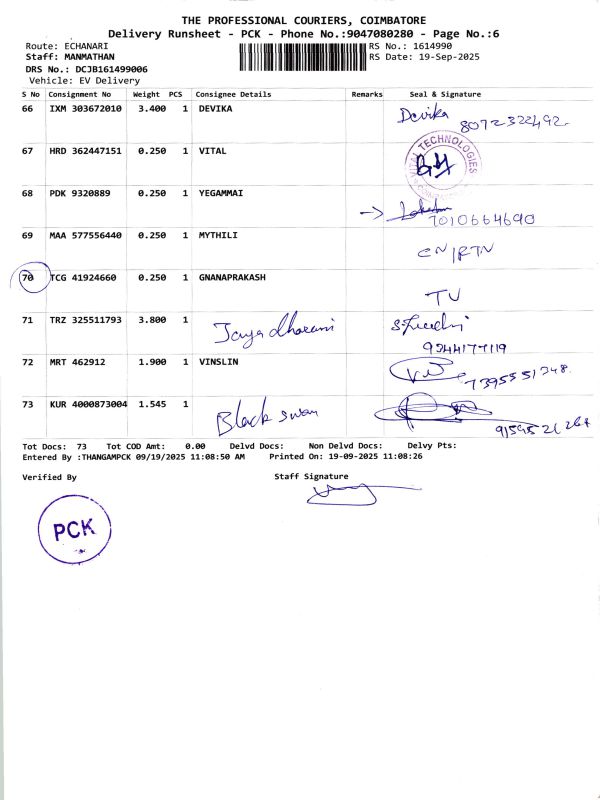 THE PROFESSIONAL COURIERS, COIMBATORE
Delivery Runsheet - PCK - Phone No.:9047080280 - Page No.:6
Route: ECHANARI RS No.: 1614990
Staff: MANMATHAN RS Date: 19-Sep-2025
DRS No.: DCJB161499006
Vehicle: EV Delivery
S No Consignment No Weight PCS Consignee Details Remarks Seal & Signature
66 IXM 303672010 3.400 1 DEVIKA Devika
8072322492
67 HRD 362447151 0.250 1 VITAL VITAL TECHNOLOGIES
68 PDK 9320889 0.250 1 YEGAMMAI
7010664690
69 MAA 577556440 0.250 1 MYTHILI
CN/RTN
70 TCG 41924660 0.250 1 GNANAPRAKASH
TV
71 TRZ 325511793 3.800 1 Jaya dharani
9344177119
72 MRT 462912 1.900 1 VINSLIN
7395551348
73 KUR 4000873004 1.545 1 Black swan
Tot Docs: 73 Tot COD Amt: 0.00 Delvd Docs: Non Delvd Docs: Delvy Pts:
Entered By :THANGAMPCK 09/19/2025 11:08:50 AM Printed On: 19-09-2025 11:08:26
Verified By Staff Signature
PCK